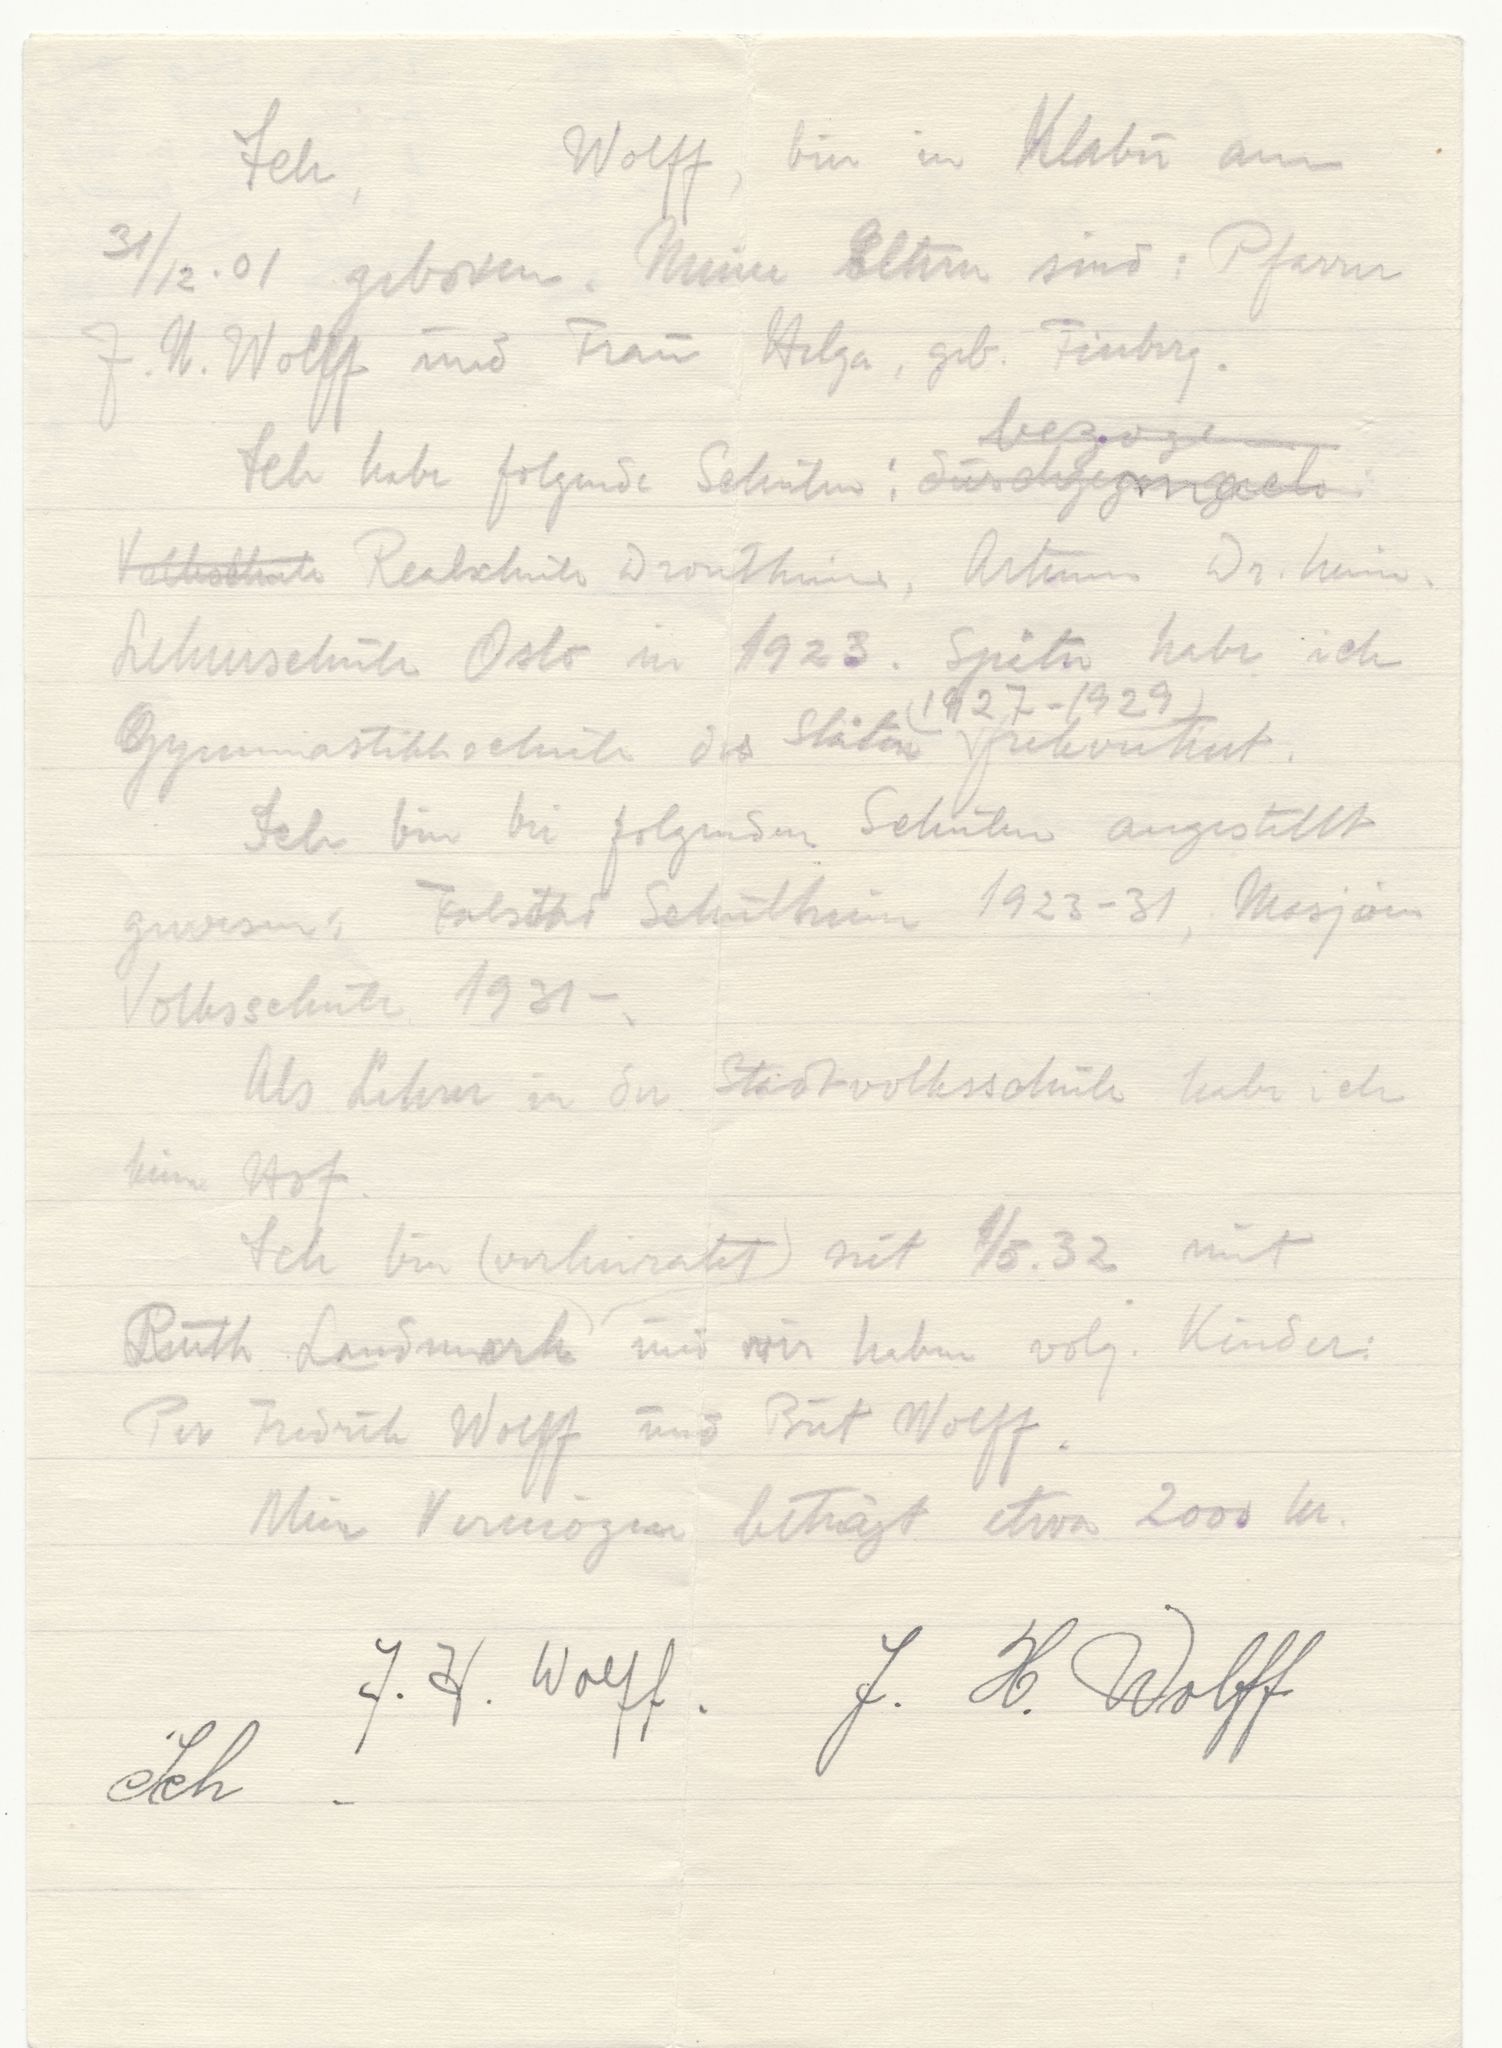 Ich, Wolff, bin in Klabü am
31/12.01 geboren. Meine Eltern sind: Pfarrer
J. N. Wolff und Frau Helga, geb. Finberg.
bezogen
Ich habe folgende Schulen: durchgegangen:
Volksschule Realschule Drontheim, Artium Dr.heim.
Lehrerschule Oslo in 1923. Später habe ich
(1927-1929)
Gymnastikkschule des Staten frekventiert.
Ich bin bei folgenden Schulen angestellt
gewesen: Falstad Schulheim 1923-31, Mosjøen
Volksschule 1931-.
Als Lehrer in der Stadtvolksschule habe ich
keine Hof.
Ich bin (verheiratet) seit 1/5.32 mit
Ruth Landmark und wir haben volg. Kinder:
Per Fredrik Wolff und Brit Wolff.
Mein Vermögen beträgt etwa 2000 kr.
J. H. Wolff. J. H. Wolff
Ich -